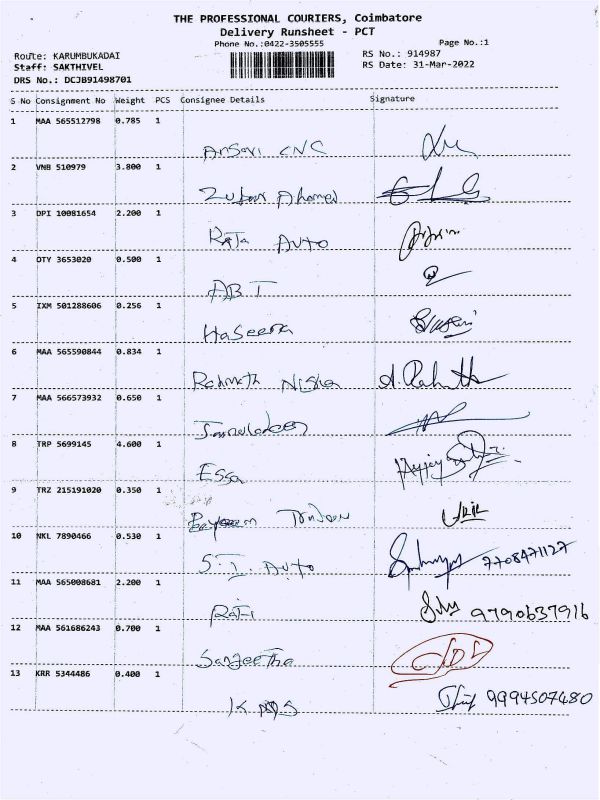 THE PROFESSIONAL COURIERS, Coimbatore
Delivery Runsheet - PCT
Phone No.:0422-3505555
Page No.:1
Route: KARUMBUKADAI
RS No.: 914987
Staff: SAKTHIVEL
RS Date: 31-Mar-2022
DRS No.: DCJB91498701
S No Consignment No Weight PCS Consignee Details Signature
1 MAA 565512798 0.785 1
Ansari CNC
2 VNB 510979 3.800 1
Zubair Ahamed
3 DPI 10081654 2.200 1
Raja Auto
4 OTY 3653020 0.500 1
ABT
5 IXM 501288606 0.256 1
Haseena
6 MAA 565590844 0.834 1
Rahmath Nisha A. Rahmath
7 MAA 566573932 0.650 1
8 TRP 5699145 4.600 1
Essa
9 TRZ 215191020 0.350 1
10 NKL 7890466 0.530 1
S.I. Auto 7708471127
11 MAA 565008681 2.200 1
Rafi 9790637916
12 MAA 561686243 0.700 1
Sangeetha
13 KRR 5344486 0.400 1
9994507480